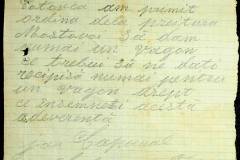 Golovca am primit
ordina dela preitura
Mostovoi Să dam
numai un vagon
ce trebui să ne dati
recipisă numai pentru
un vagon drept
ce insemnati acista
adeverentă